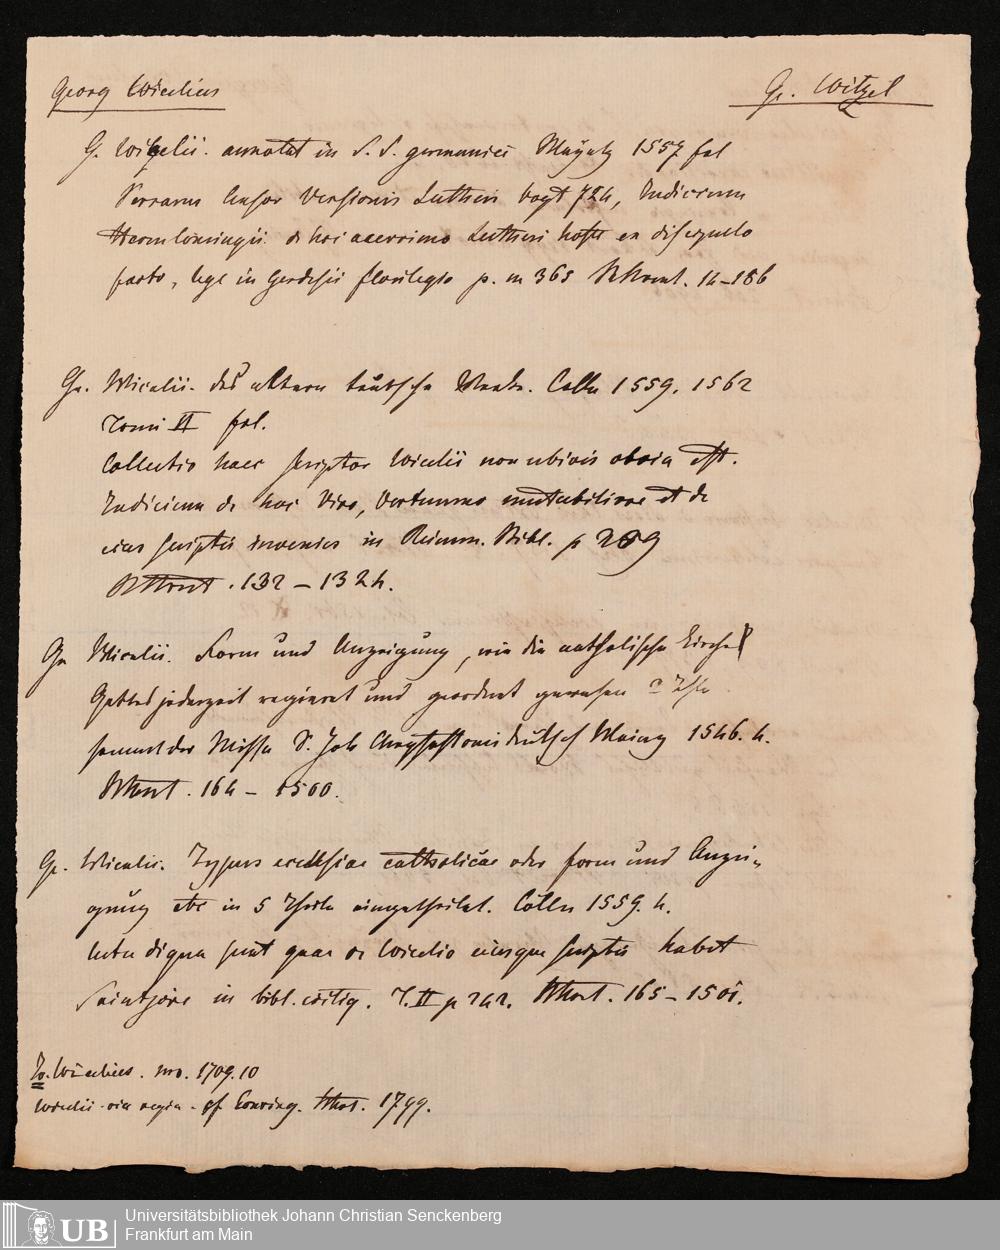 Georg Wicelius
Ge. Witzel
G. Wicelii. annotat in S. S. germanici Mayntz 1557 fol
Versionis Lutheri Vogt 724, Iudicium
Hermi Conringii de hoc acerrimo Lutheri hoste ex discipulo
facto, lege in Gerdesii florilegio p. m 365 14-186
Ge. Wicelii. des ältern teutsche Werke. Cölln 1559. 1562
Tomi II fol.
Collectio haec scriptor Wicelii non ubivis obvia est.
Iudicium de hoc Viro, Vertumno mutabiliore et de
eius scriptis invenies in Reimm. Bibl. p 209
132-1324.
Ge Wicelii. Form und Anzeigung, wie die catholische Kirche
Gottes jederzeit regieret und geordnet gewesen
sammt der Missa S. Joh Chrysostomi deutsch Mainz 1546. 4.
164 - 1500.
Ge. Wicelii. Typus ecclesiae catholicae oder form und Anzei-
gung etc in 5 Theile eingetheilet. Cölln 1559. 4.
lectu digna sunt quae de Wicelio eiusque scriptis habet
Saintjore in bibl. critiq. T. II p 242. 165-1501.
Wicelius. nro. 1709.10
Wicelii via regia. cf Conring. 1799.
UB
Universitätsbibliothek Johann Christian Senckenberg
Frankfurt am Main